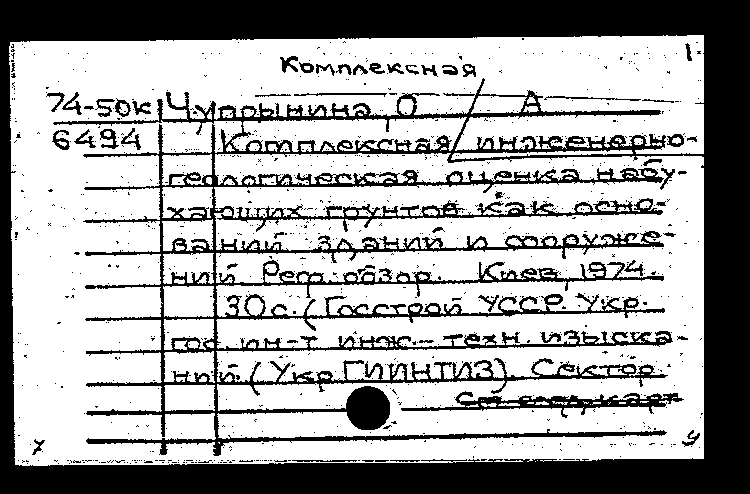 1.
Комплексная
74-50к Чупрынина, О А
6494 Комплексная инженерно-
геологическая оценка набу-
хающих грунтов как осно-
ваний зданий и сооруже-
ний Реф. обзор. Киев, 1974.
30с. (Госстрой УССР. Укр.
гос. ин-т инж.-техн. изыска-
ний (УкрГИИНТИЗ). Сектор
См. след. карт
7 У